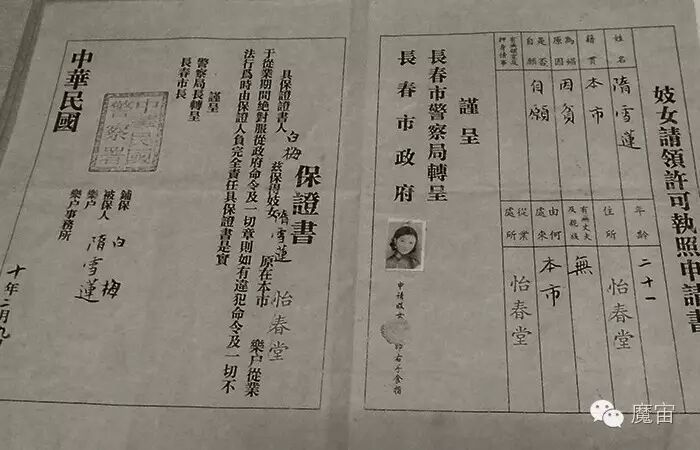 妓女請領許可執照申請書
姓名 隋雪蓮 年齡 二十一
籍貫 本市 住所 怡春堂
為娼原因 因貧 有無丈夫及親族 無
是否自願 自願 由何處來 本市
有無領家及押身情事 從業處所 怡春堂
謹呈
長春市警察局轉呈
長春市政府
申請妓女
的右手食指
保證書
具保證書人 白梅 茲保得妓女 隋雪蓮 原在本市 怡春堂 樂户從業
于從業期間絶對服從政府命令及一切章則如有違犯命令及一切不
法行爲時由保證人負完全責任具保證書是實
謹呈
警察局長轉呈
長春市長
中華民國
警察署
舖保
被保人 白梅
樂户 隋雪蓮
樂户事務所
中華民國
十年二月九
魔宙